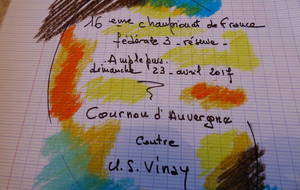 16 eme championnat de France
fédérale 3 - réserve -
Amplepuis.
dimanche 23 - avril 2017
Cournon d'Auvergne
Contre
U.S. Vinay